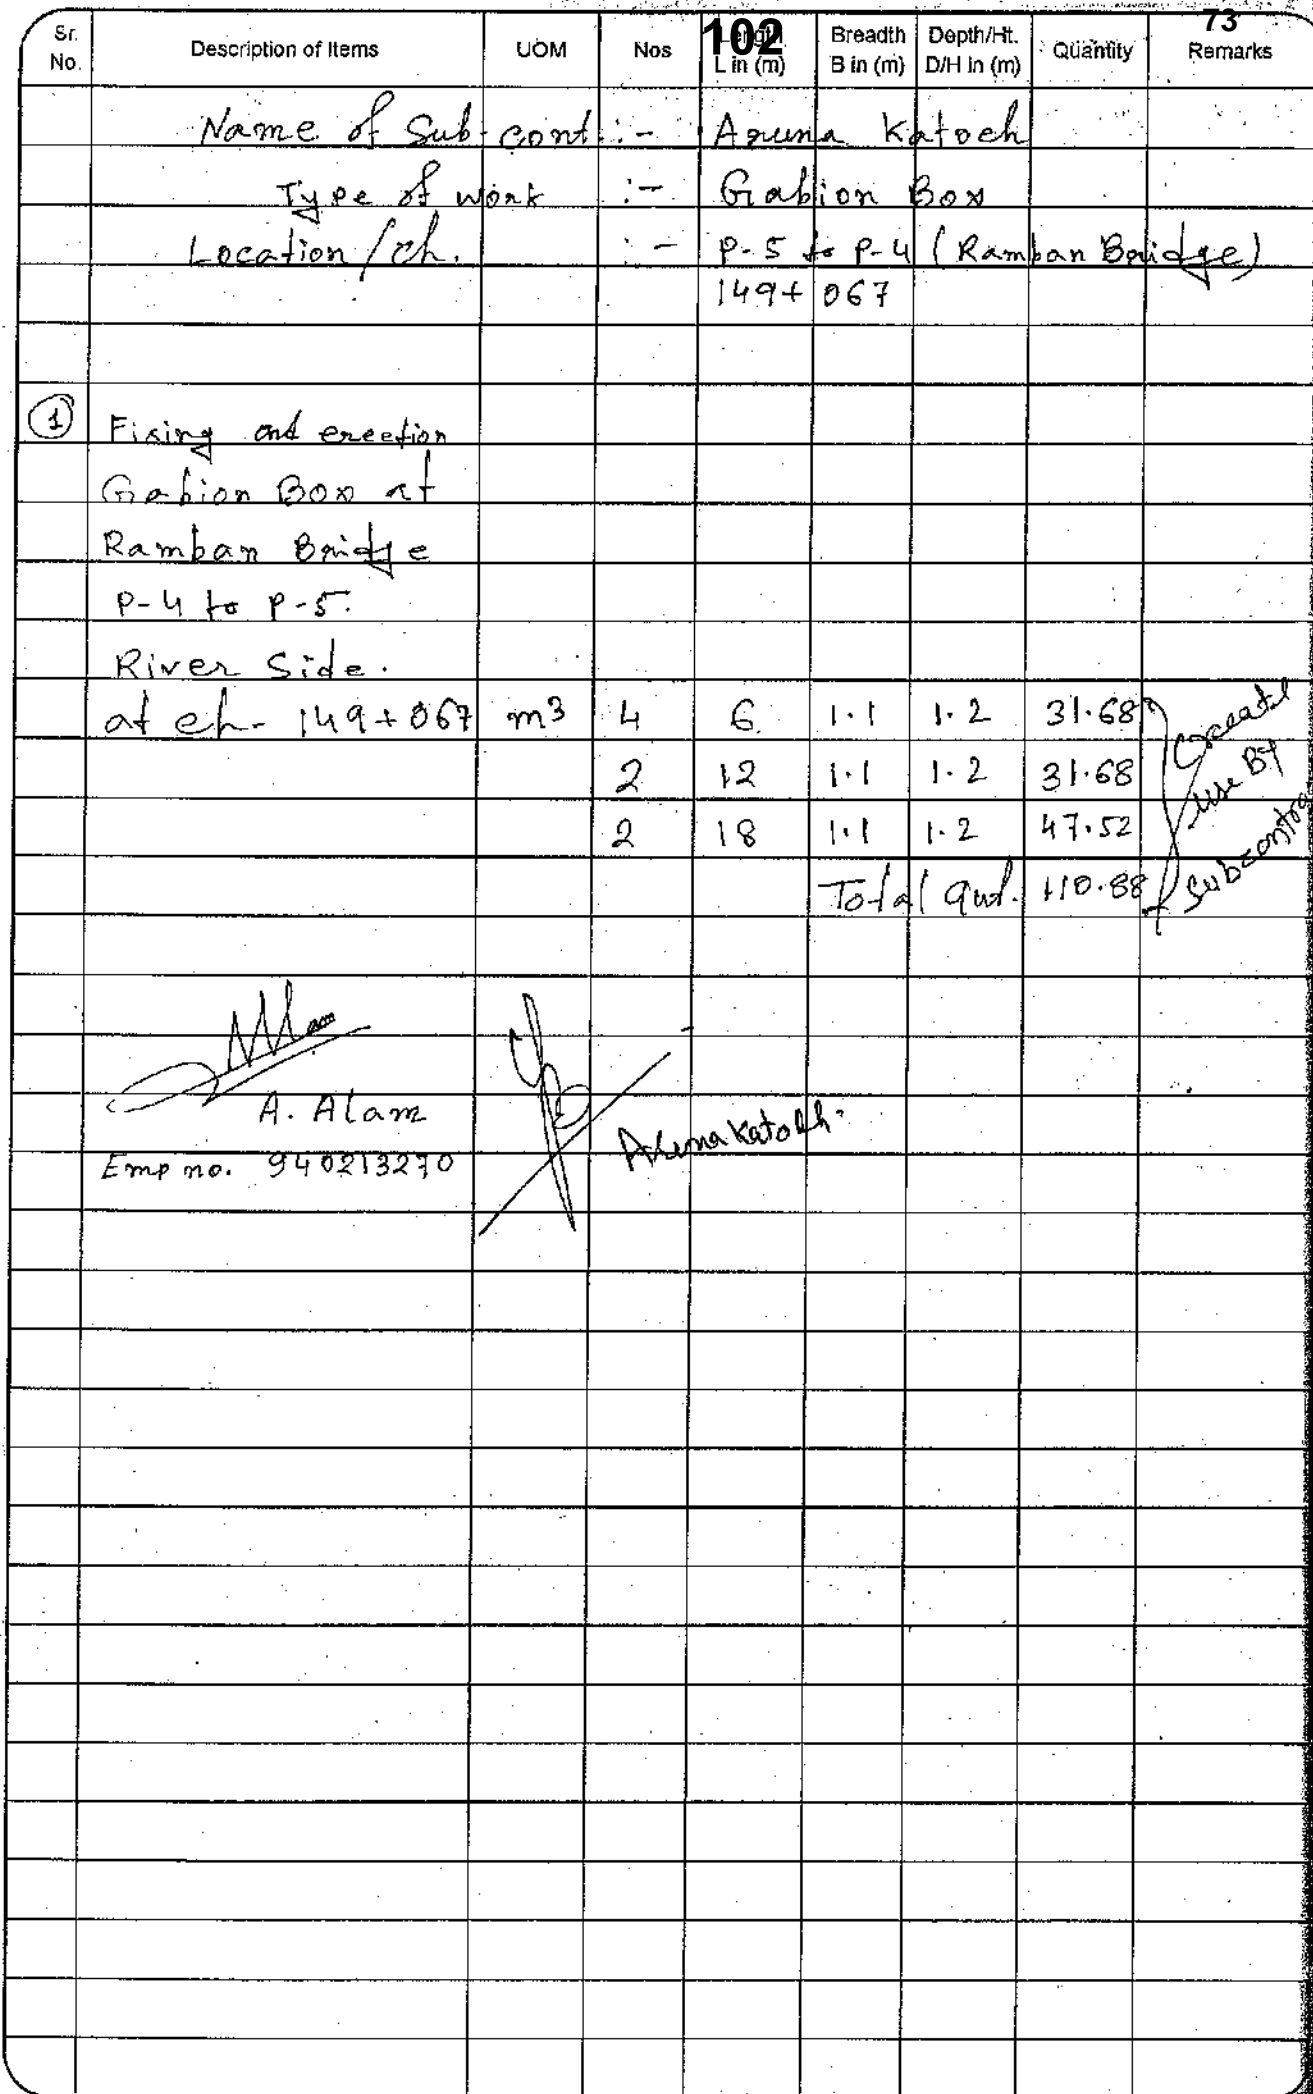 102
73
Sr. No. Description of Items UOM Nos Length L in (m) Breadth B in (m) Depth/Ht. D/H in (m) Quantity Remarks
Name of Sub-cont :- Aruna Katoch
Type of work :- Gabion Box
Location/ch. :- P-5 to P-4 (Ramban Bridge)
149+067
1 Fixing and erection
Gabion Box at
Ramban Bridge
P-4 to P-5.
River Side.
at ch- 149+067 m3 4 6 1.1 1.2 31.68
2 12 1.1 1.2 31.68
2 18 1.1 1.2 47.52
Total Qut. 110.88
use By
Subcontra
A. Alam
Aruna Katoch
Emp no. 940213270